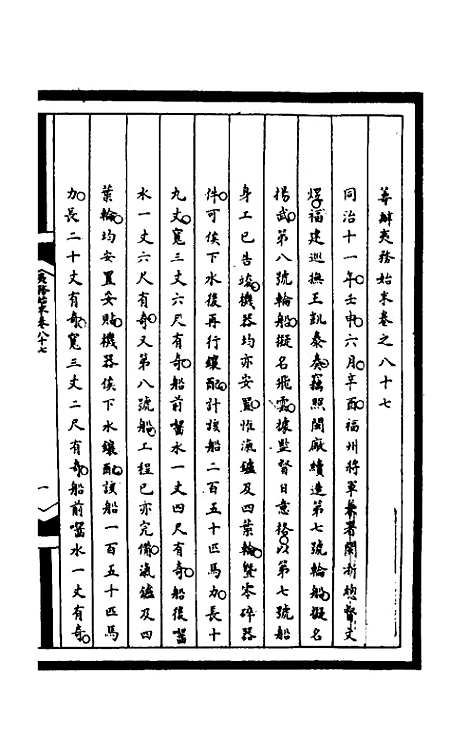 籌辦夷務始末卷之八十七
同治十一年壬申六月辛酉福州將軍兼署閩浙總督文
煜福建巡撫王凱泰奏竊照閩廠續造第七號輪船擬名
揚武第八號輪船擬名飛雲據監督日意格以第七號船
身工已告竣機器均亦安置惟滊鑪及四葉輪暨零碎器
件可俟下水後再行鑲配計該船二百五十匹馬力長十
九丈寬三丈六尺有奇船前喫水一丈四尺有奇船後喫
水一丈六尺有奇又第八號船工程已亦完備滊鑪及四
葉輪均安置妥貼機器俟下水鑲配該船一百五十匹馬
力長二十丈有奇寬三丈二尺有奇船前喫水一丈有奇
夷務始末卷八十七
一